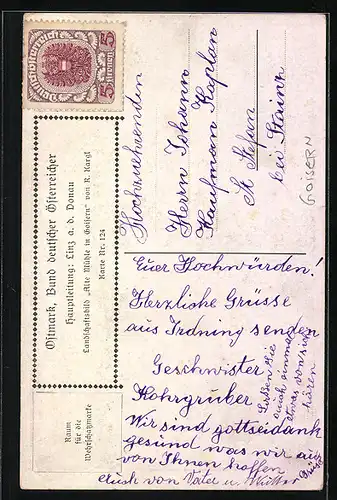 Deutschösterreich
5
Kronen
5
Ostmark, Bund deutscher Österreicher
Hauptleitung: Linz a. d. Donau
Landschaftsbild „Alte Mühle in Goisern“ von R. Kargl
Karte Nr. 124
Raum
für die
Wehrschatzmarke
Hochzuehrenden
Herrn Johann
Kaufman Kaplan
St Stefan
bei Stainz
GOISERN
Euer Hochwürden!
Herzliche Grüsse
aus Irdning senden
Geschwister
Hohrgruber
Wir sind gottseidank
gesund was wir auch
von Ihnen hoffen
Auch von Vater u Mutter
Lassen Sie
auch einmal
etwas von sich
hören